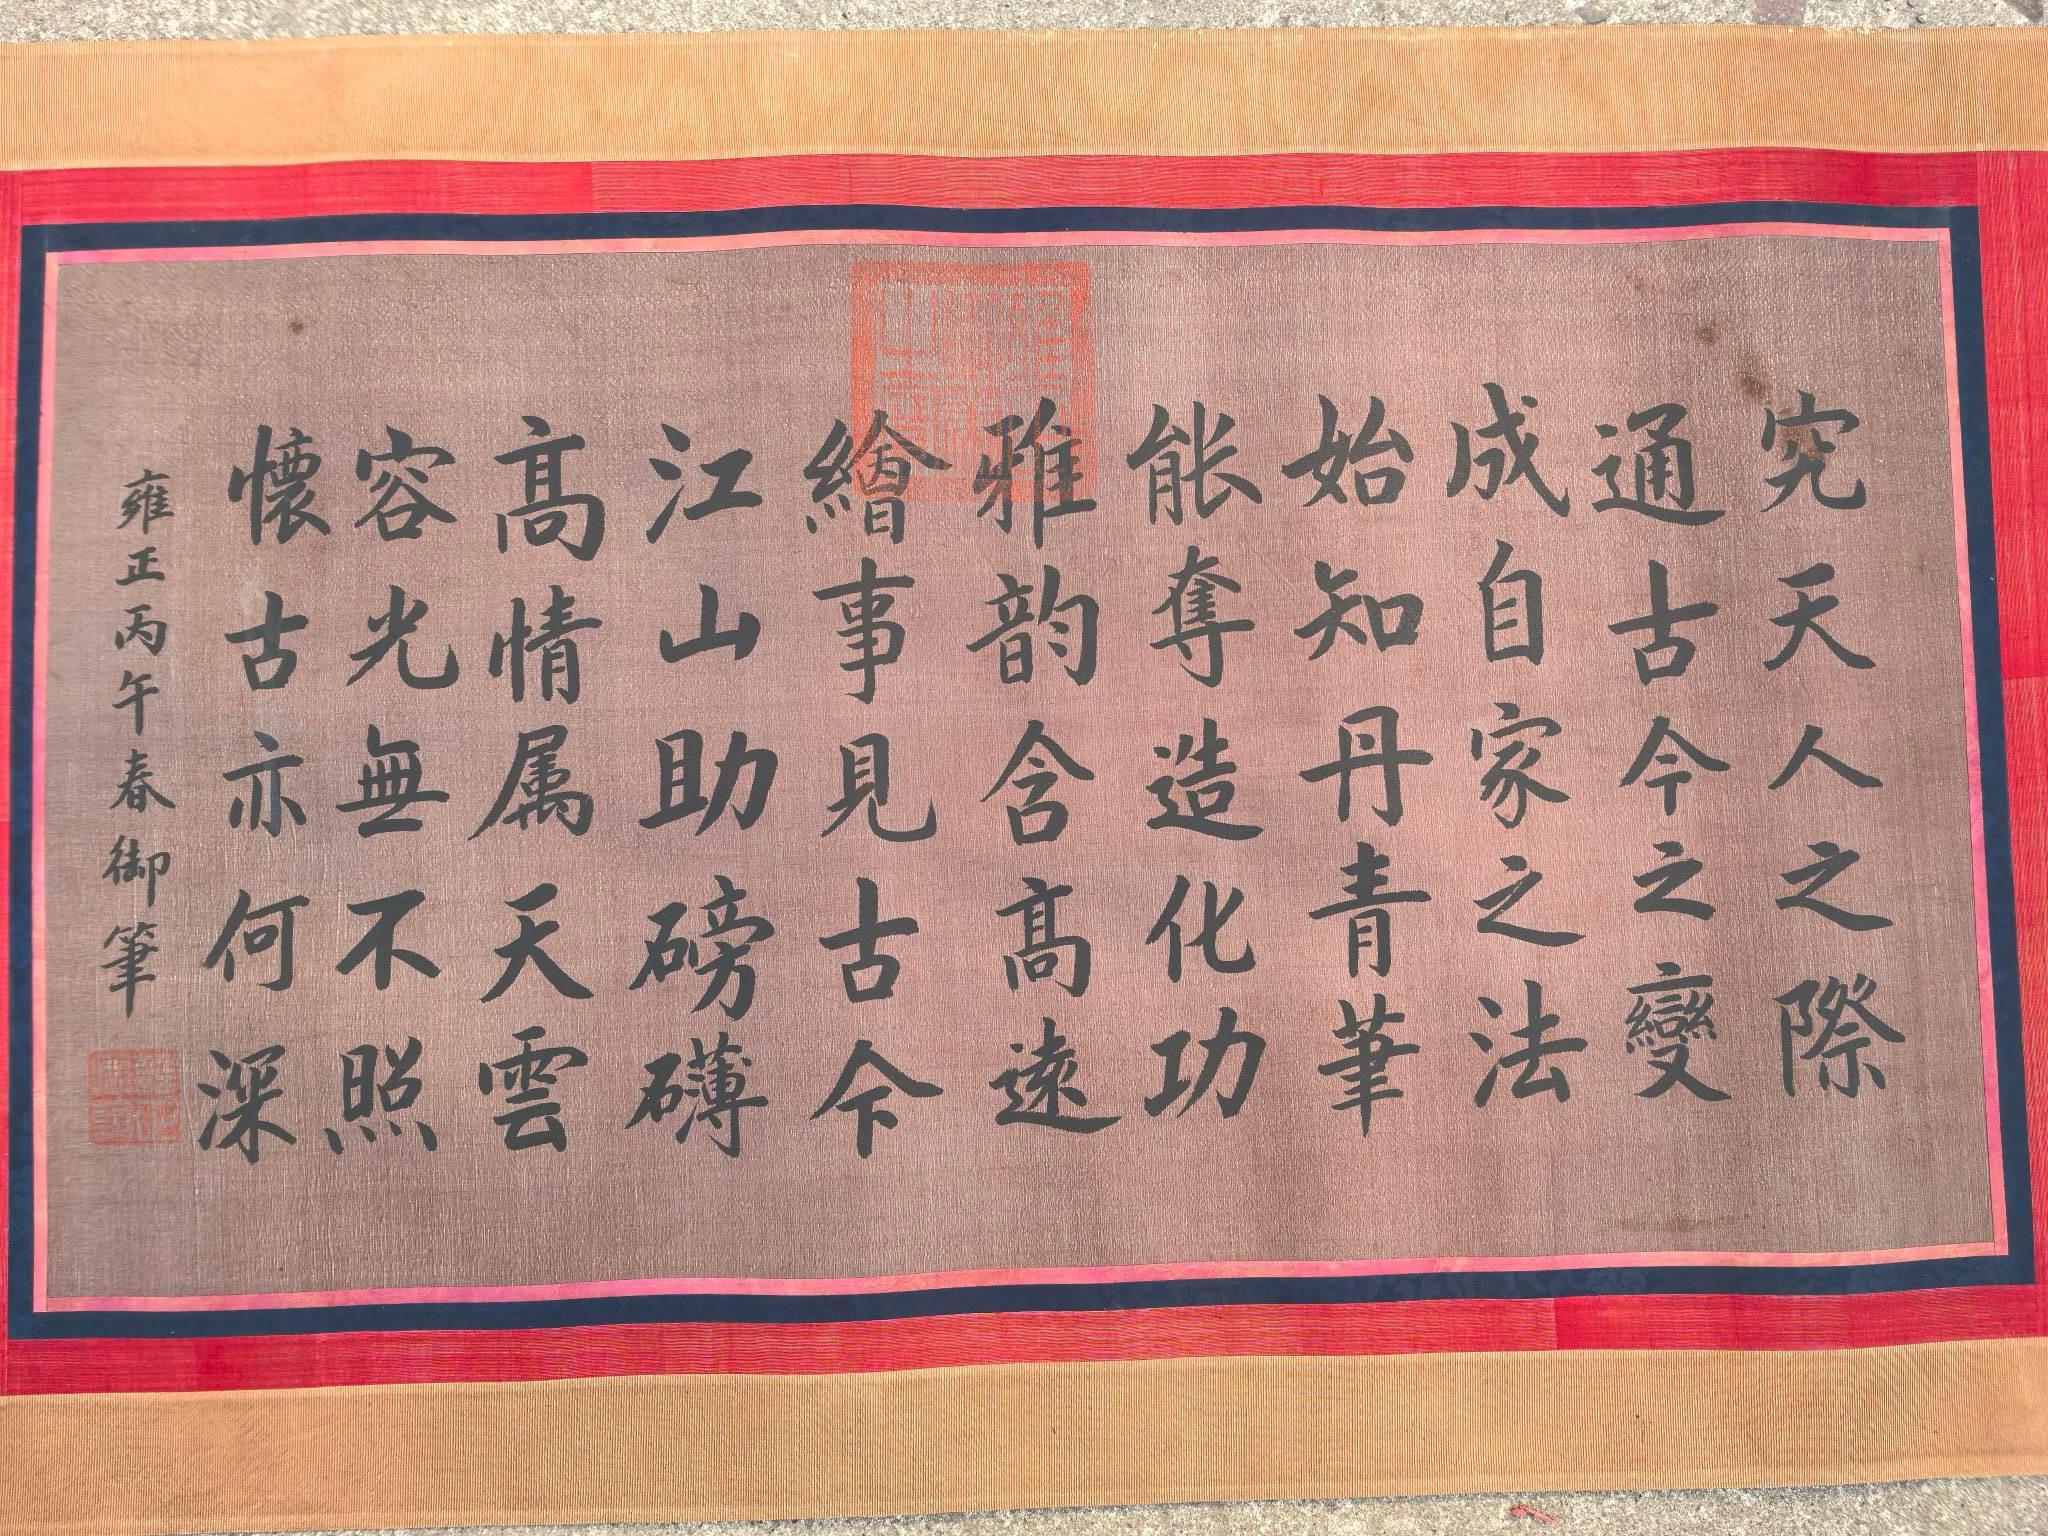 究天人之際
通古今之變
成自家之法
始知丹青筆
能奪造化功
雅韵含高遠
繪事見古今
江山助磅礴
高情属天雲
容光無不照
懷古亦何深
雍正丙午春御筆